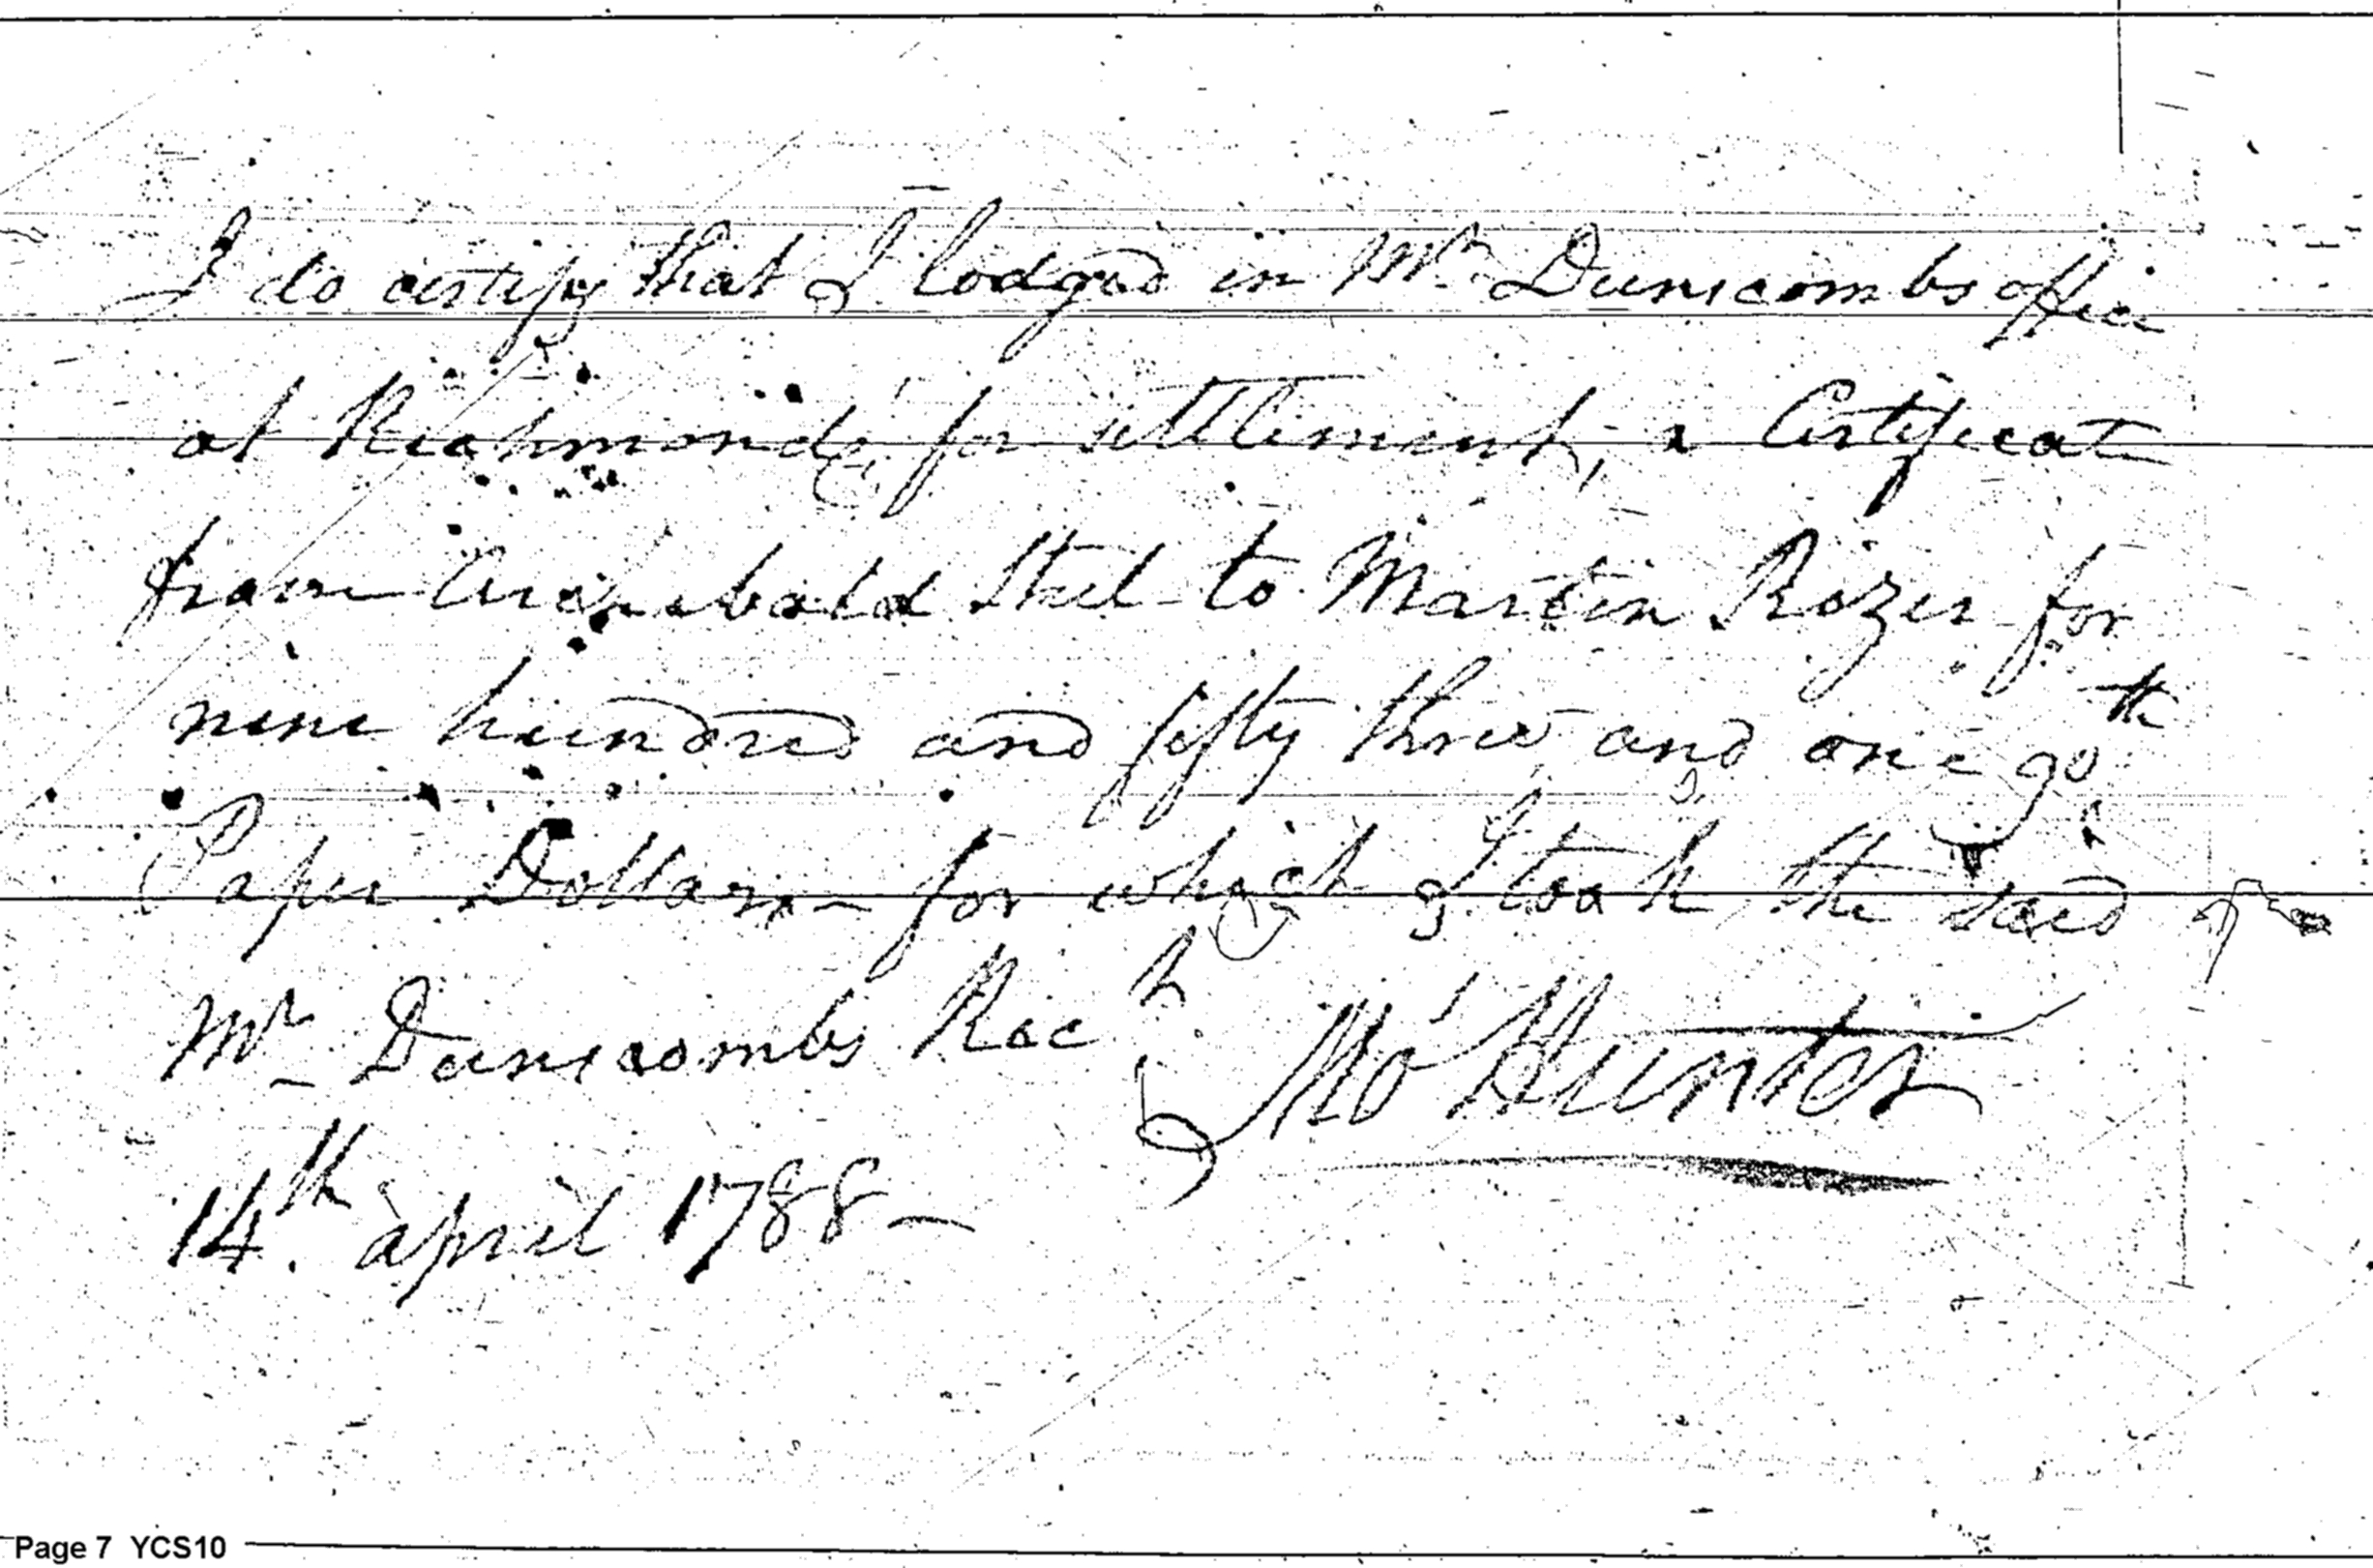 I do certify that I lodged in Mr Dunscombs office
at Richmond for settlement, a Certificat
from Archebald Steel to Martin Rozer for
nine hundred and fifty three and one 90th
Paper Dollars – for which I took the said
Mr Dunscombs Rect
Mo' Hunter
14th april 1788 –
Page 7 YCS10